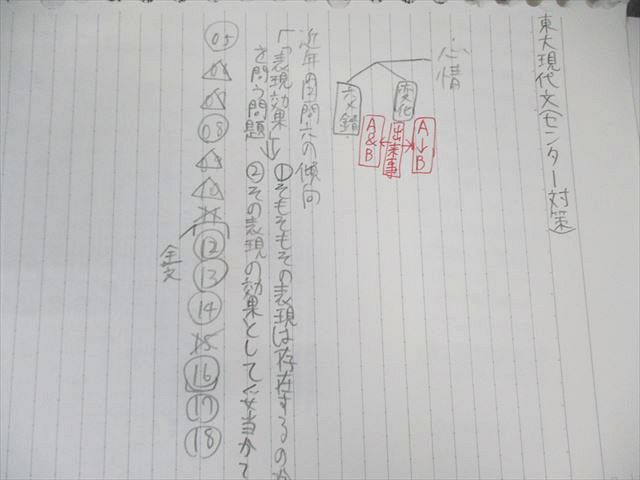 東大現代文(センター対策)
心情
変化
A→B
出来事
交錯
A&B
近年の問六の傾向
「表現効果」
を問う問題
→
①そもそもその表現は存在するのか
②その表現の効果として妥当かて
05
08
12
13
14
15
16
17
18
全文